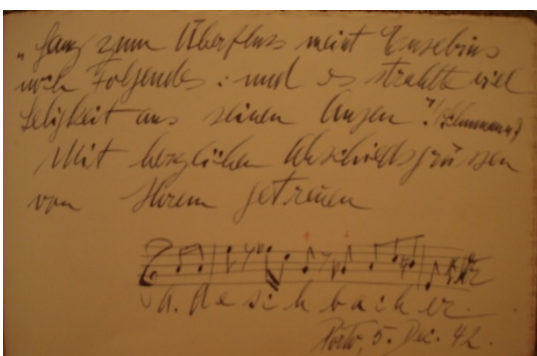 „Ganz zum Überfluss meint Eusebius
noch Folgendes: und es strahlte viel
Seligkeit aus seinen Augen"! (Schumann)
Mit herzlichen Abschiedsgrüssen
von Ihrem getreuen
Porto, 5. Dez. 42.